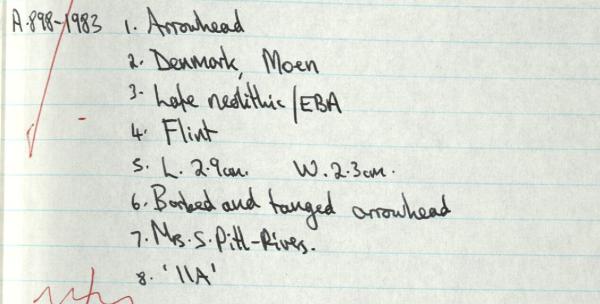 A.898-1983 1. Arrowhead
2. Denmark, Moen
3. Late neolithic/EBA
4. Flint
5. L. 2.9cm. W. 2.3cm.
6. Barbed and tanged arrowhead
7. Mrs. S. Pitt-Rivers.
8. '11A'